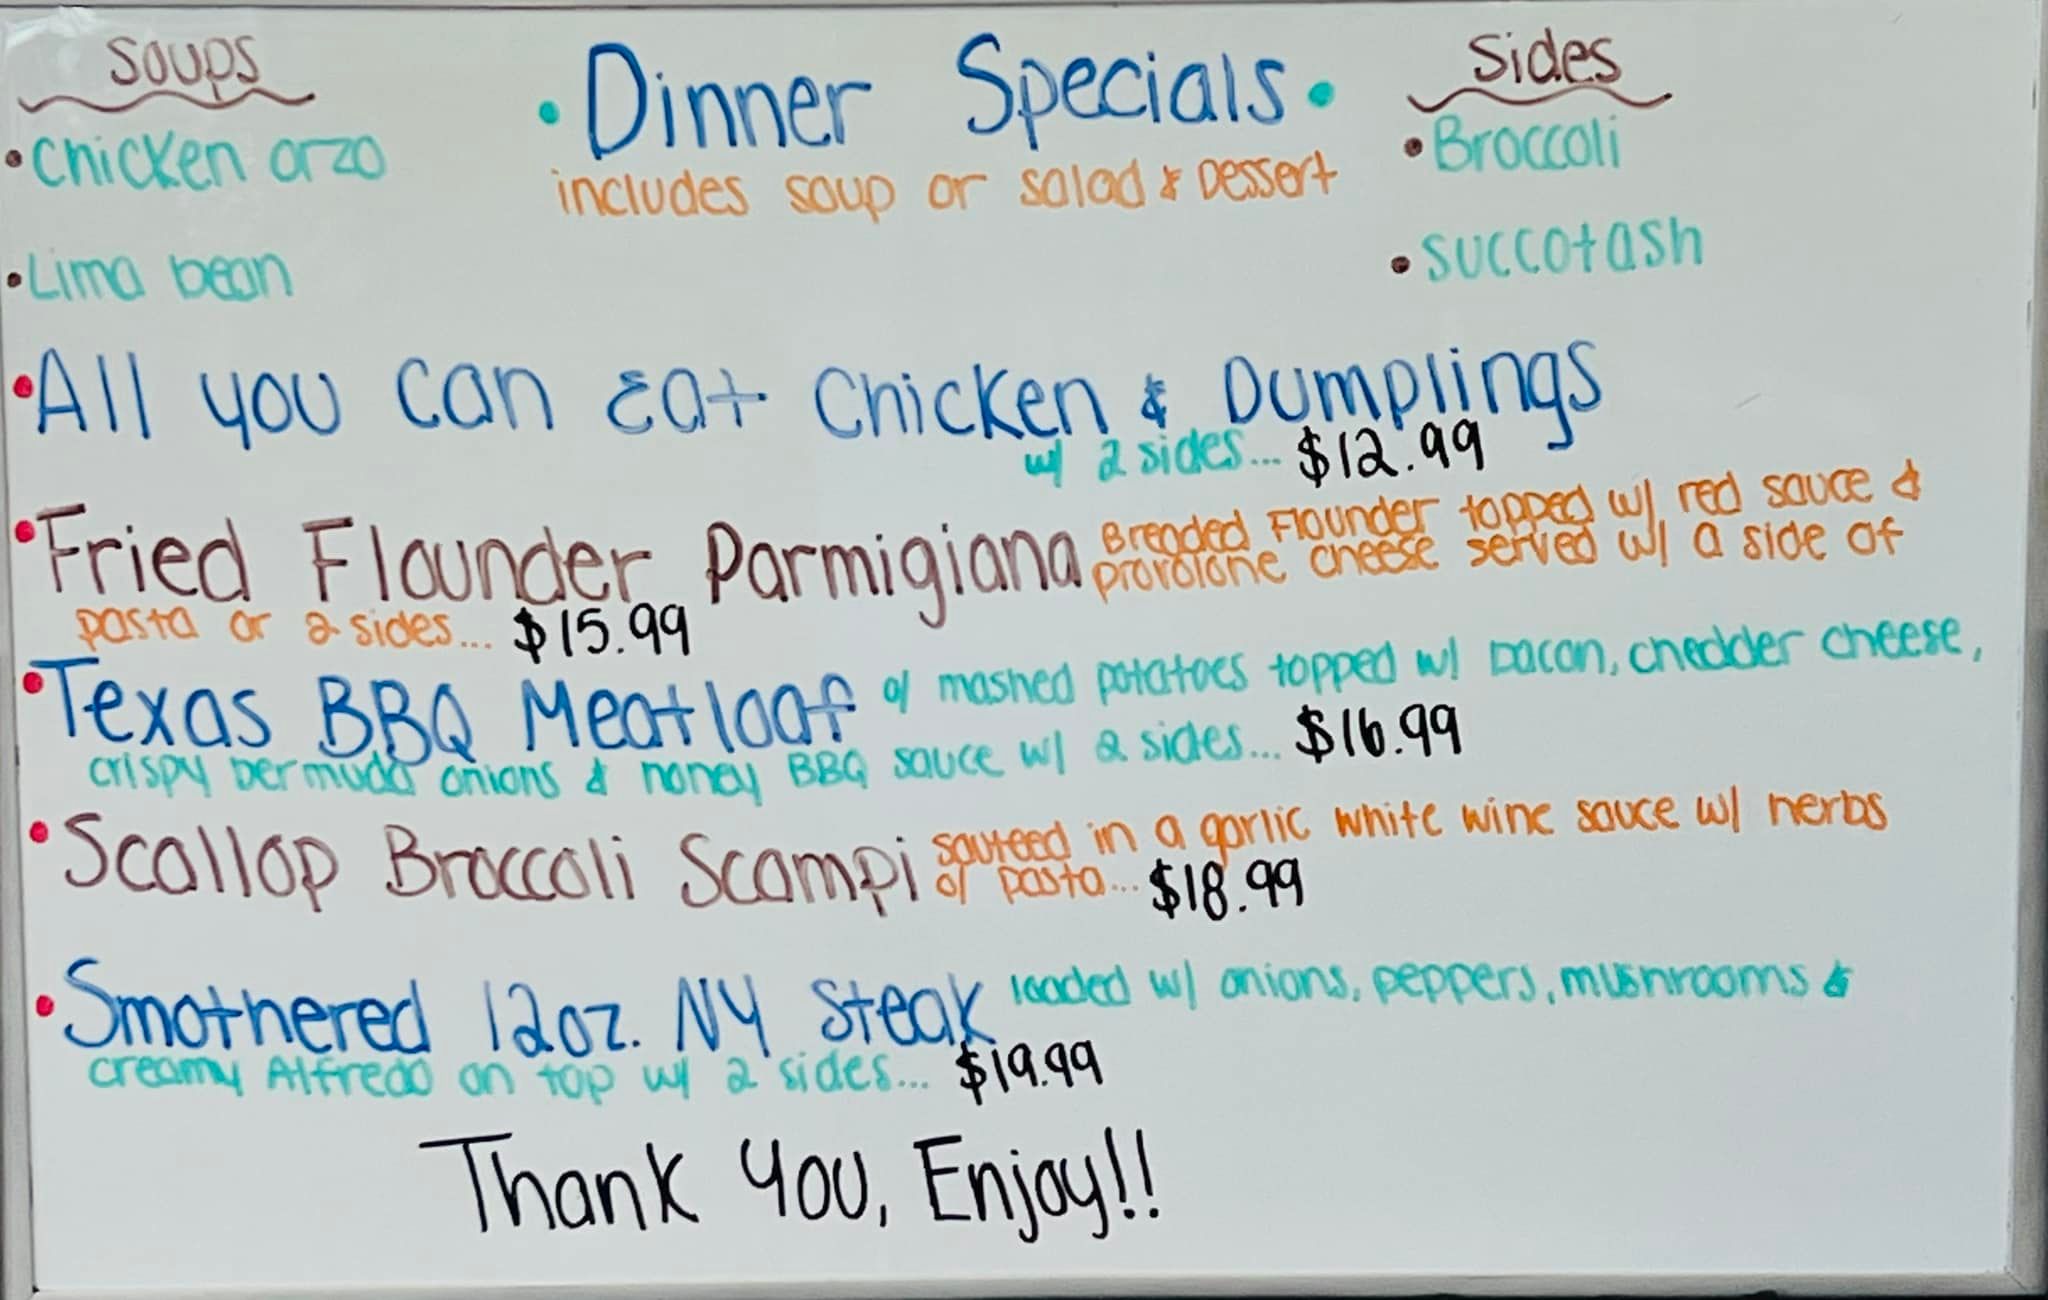 Soups
• Chicken orzo
• Lima bean
• Dinner Specials •
includes soup or salad & Dessert
Sides
• Broccoli
• succotash
• All you can Eat Chicken & Dumplings
w/ 2 sides... $12.99
• Fried Flounder Parmigiana Breaded Flounder topped w/ red sauce &
provolone cheese served w/ a side of
pasta or 2 sides... $15.99
• Texas BBQ Meatloaf o/ mashed potatoes topped w/ bacon, chedder cheese,
crispy bermuda onions & honey BBQ sauce w/ 2 sides... $16.99
• Scallop Broccoli Scampi sauteed in a garlic white wine sauce w/ herbs
o/ pasta... $18.99
• Smothered 12oz. NY Steak loaded w/ onions, peppers, mushrooms &
creamy Alfredo on top w/ 2 sides... $19.99
Thank you, Enjoy!!